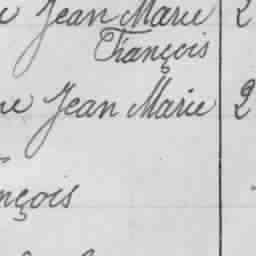 Jean Marie 2
François
Jean Marie 2
nçois